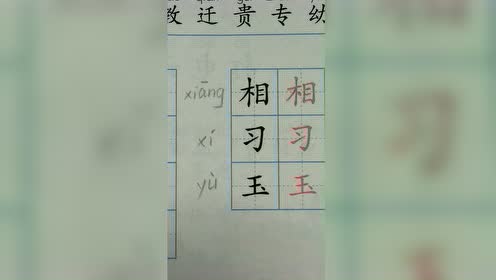 迁贵专幼
xiāng 相相
xí 习习
yù 玉玉